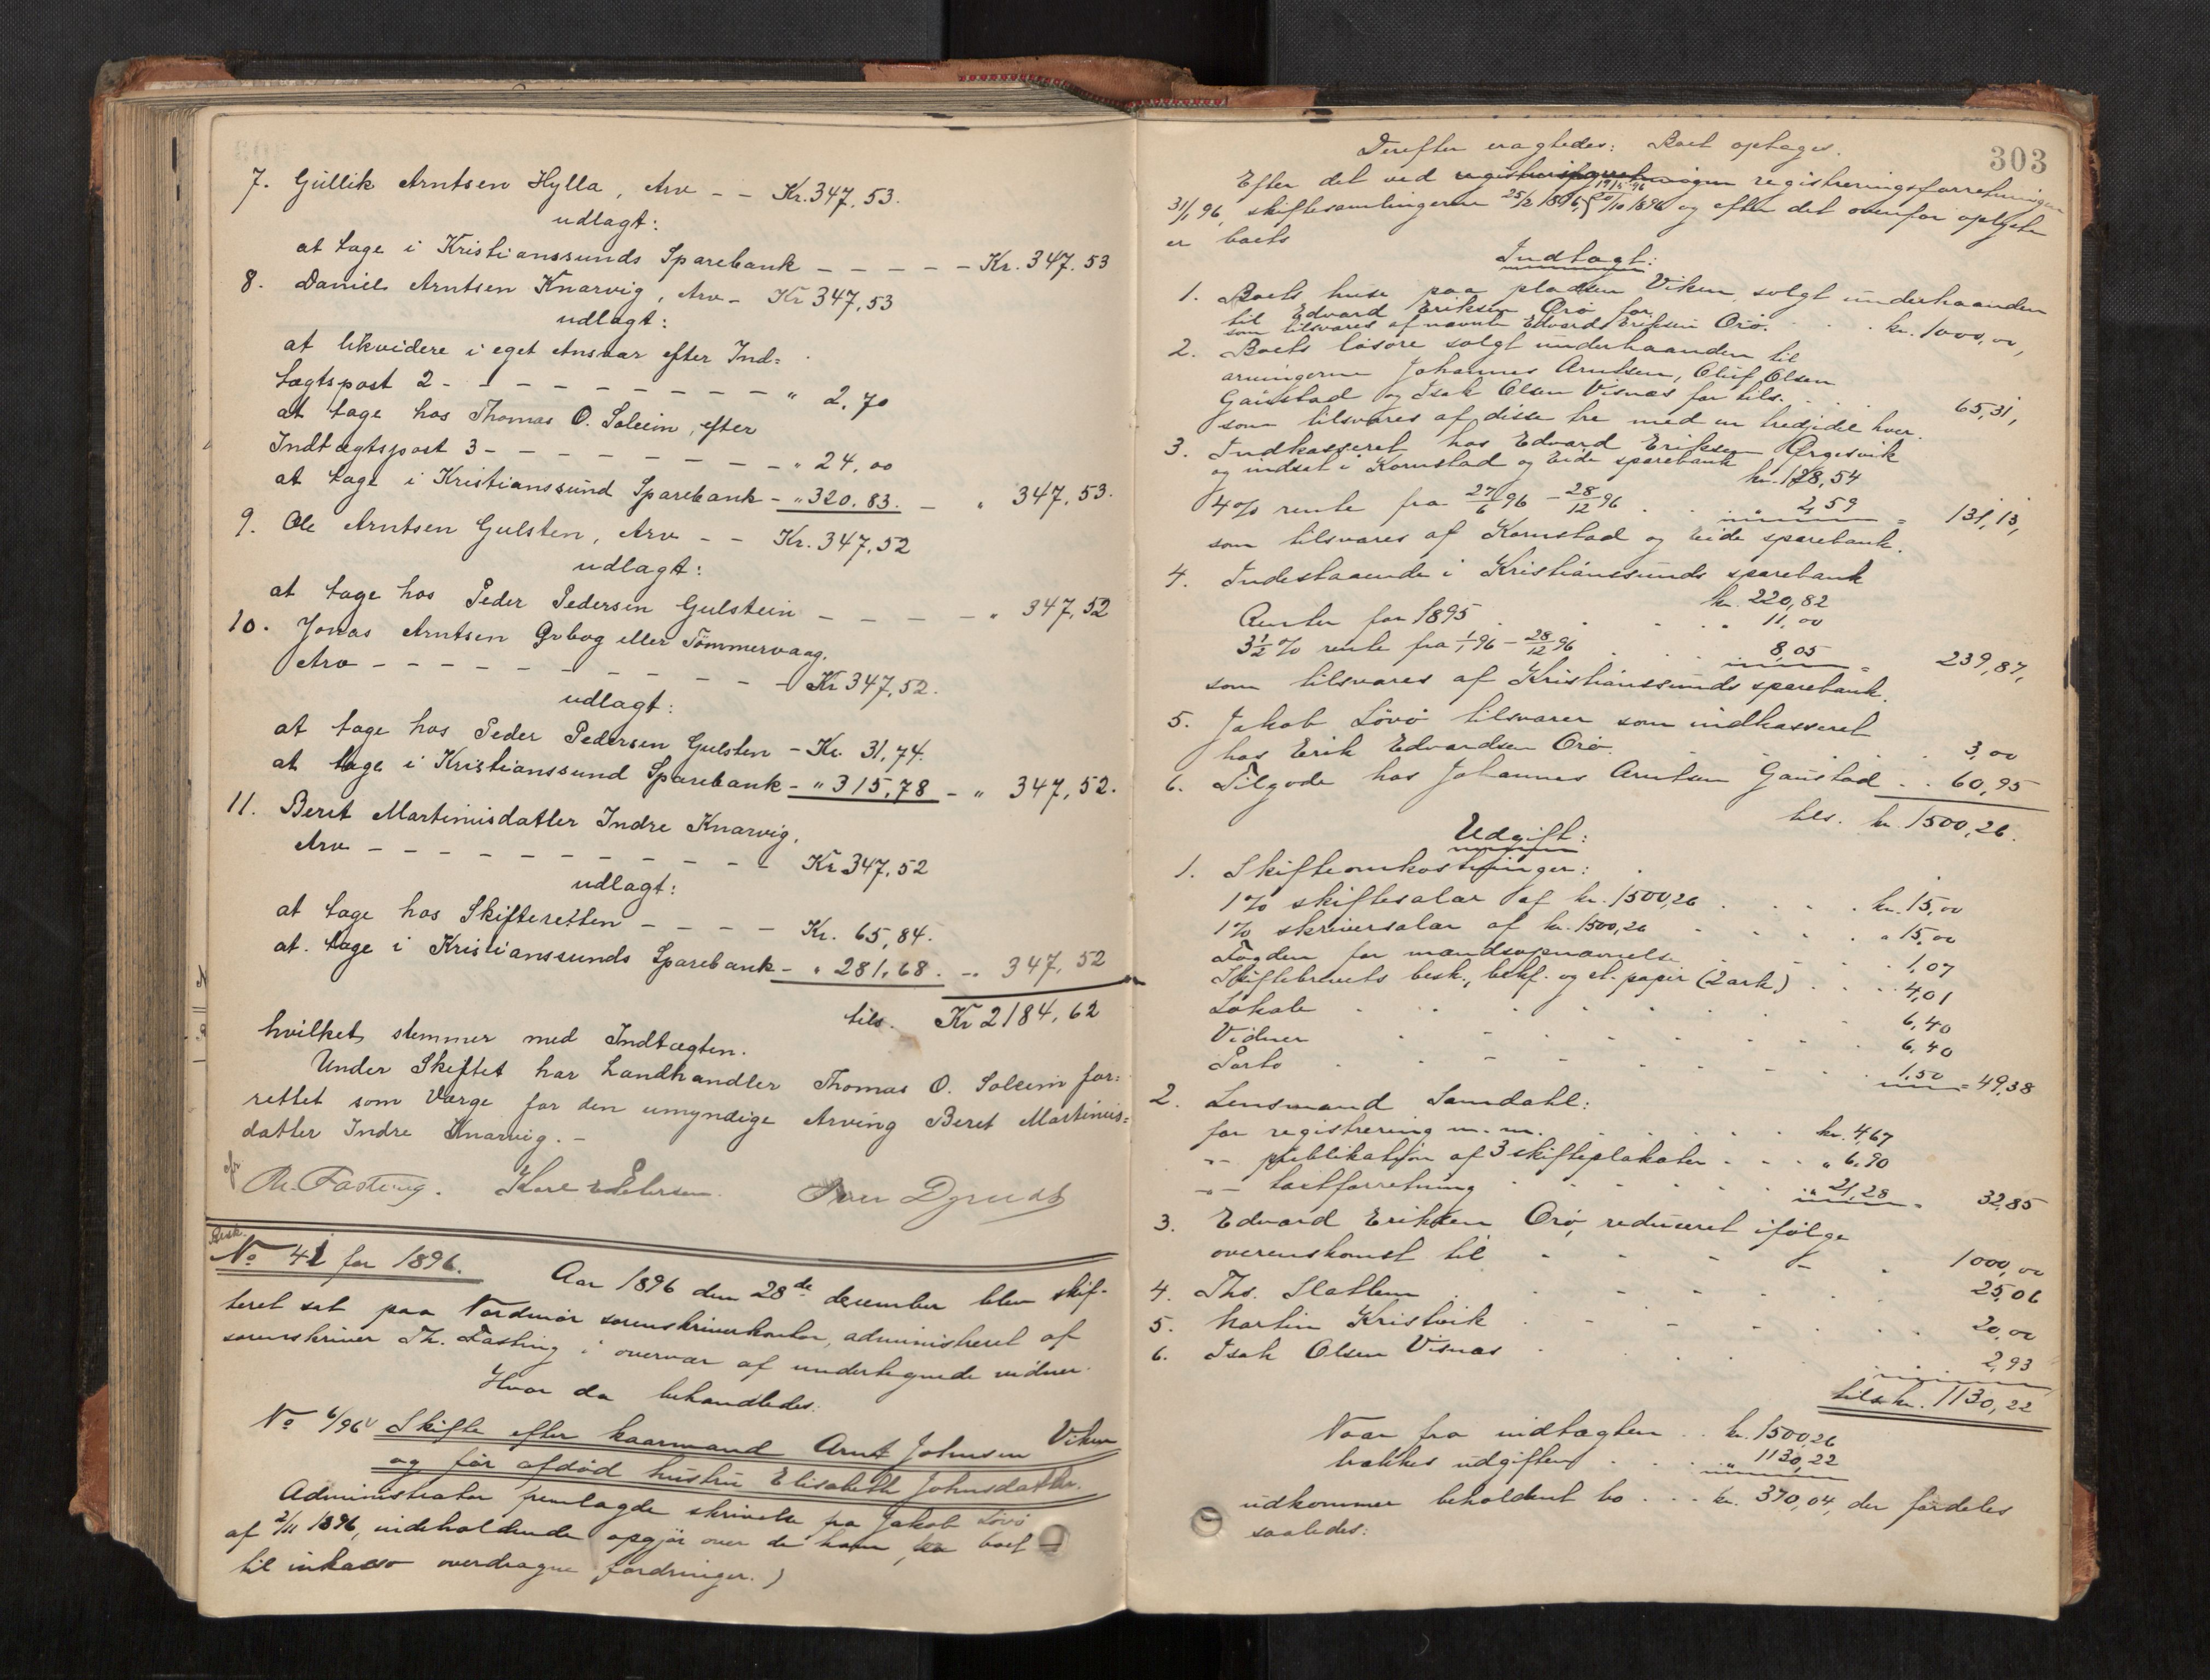 7. Gullik Arntsen Hylla, Arv - - Kr. 347,53.
udlagt:
at tage i Kristianssunds Sparebank - - - - - Kr. 347.53
8. Daniel Arntsen Knarvig, Arv - Kr 347,53
udlagt:
at likvidere i eget Ansvar efter Ind=
tægtspost 2 - - - - - - - - - " 2,70
at tage hos Thomas O. Soleim, efter
Indtægtspost 3 - - - - - - - - " 24,00
at tage i Kristianssund Sparebank - " 320.83. - " 347,53.
9. Ole Arntsen Gulsten, Arv - - Kr. 347,52
udlagt:
at tage hos Peder Pedersen Gulstein - - - - - " 347,52
10. Jonas Arntsen eller Tömmervaag.
Arv - - - - - - - - - - Kr 347,52.
udlagt:
at tage hos Peder Pedersen Gulsten - Kr. 31,74.
at tage i Kristianssund Sparebank - " 315,78 - " 347,52.
11. Beret Martinusdatter Indre Knarvig.
Arv - - - - - - - - - - Kr 347,52
udlagt:
at tage hos Skifteretten - - - - Kr. 65,84.
at tage i Kristianssunds Sparebank - " 281,68. - " 347,52
tils. Kr 2184,62
hvilket stemmer med Indtægten.
Under Skiftet har Landhandler Thomas O. Soleim for=
rettet som Værge for den umyndige Arving Beret Martinus=
datter Indre Knarvig. -
Th. Fasting. Karl Petersen.
Besk.
No 41 for 1896. Aar 1896 den 28de december blev skif-
teret sat paa Nordmør sorenskriverkontor, administreret af
sorenskriver Th. Fasting i overvær af undertegnede vidner.
Hvor da behandledes:
No 6/96 Skifte efter kaarmand Arnt Johnsen Viken
og før afdød hustru Elisabeth Johnsdatter.
Administrator fremlagde skrivelse fra Jakob Løvø
af 2/11 1896, indeholdende opgjør over de ham fra boet
til inkasso overdragne fordringer.)
303
Derefter eragtedes: Boet optages.
Efter det ved registreringsforretningen
31/1 96, skiftesamlingerne 25/2 1896, 19/5 96 20/10 1896 og efter det ovenfor oplyste
er boets
Indtægt:
1. Boets huse paa pladsen Viken, solgt underhaanden
til Edvard Eriksen Orø for . . . kr. 1000,00,
som tilsvares af nævnte Edvard Eriksen Orø.
2. Boets løsøre solgt underhaanden til
arvingerne Johannes Arntsen, Oluf Olsen
Gaustad og Isak Olsen Visnæs for tils. . . . 65,31,
som tilsvares af disse tre med en tredjedel hver.
3. Indkasseret hos Edvard Eriksen Ørgesvik
og indsat i Kornstad og Eide sparebank kr. 128,54
4% rente fra 27/6 96 - 28/12 96 . . 2,59 = 131,13,
som tilsvares af Kornstad og Eide sparebank.
4. Indestaaende i Kristianssunds sparebank
kr. 220,82
Renter for 1895 . . . . " 11,00
3½% rente fra 1/1 96 - 28/12 96 . . 8,05 = 239,87,
som tilsvares af Kristianssunds sparebank.
5. Jakob Løvø tilsvarer som indkasseret
hos Erik Edvardsen Orø. . . . . 3,00
6. Tilgode hos Johannes Arntsen Gaustad . . 60,95
tils. kr. 1500,26.
Udgift:
1. Skifteomkostninger:
1% skiftesalær af kr. 1500,26 . . . . kr. 15,00
1% skriversalær af kr. 1500,26 . . . . " 15,00
Fogden for mandsopnævnelse . . . 1,07
Skiftebrevets besk., bekf. og st. papir (2 ark) . . . 4,01
Lokale . . . . . . . . 6,40
Vidner . . . . . . . . 6,40
Porto . . . . . . . . 1,50 = 49,38
2. Lensmand Samdahl:
for registrering m. m. . . . . . kr. 4,67
-"- publikation af 3 skifteplakater . . . " 6,90
-"- takstforretning . . . . . " 21,28 = 32,85
3. Edvard Eriksen Orø, reduceret ifølge
overenskomst til . . . . . 1000,00
4. Ths. Slatlem . . . . . . 25,06
5. Martin Kristvik . . . . . . 20,00
6. Isak Olsen Visnæs . . . . . 2,93
tils. kr. 1130,22
Naar fra indtægten . . kr. 1500,26
trækkes udgiften . . . " 1130,22
udkommer beholdent bo . . . kr. 370,04, der fordeles
saaledes: